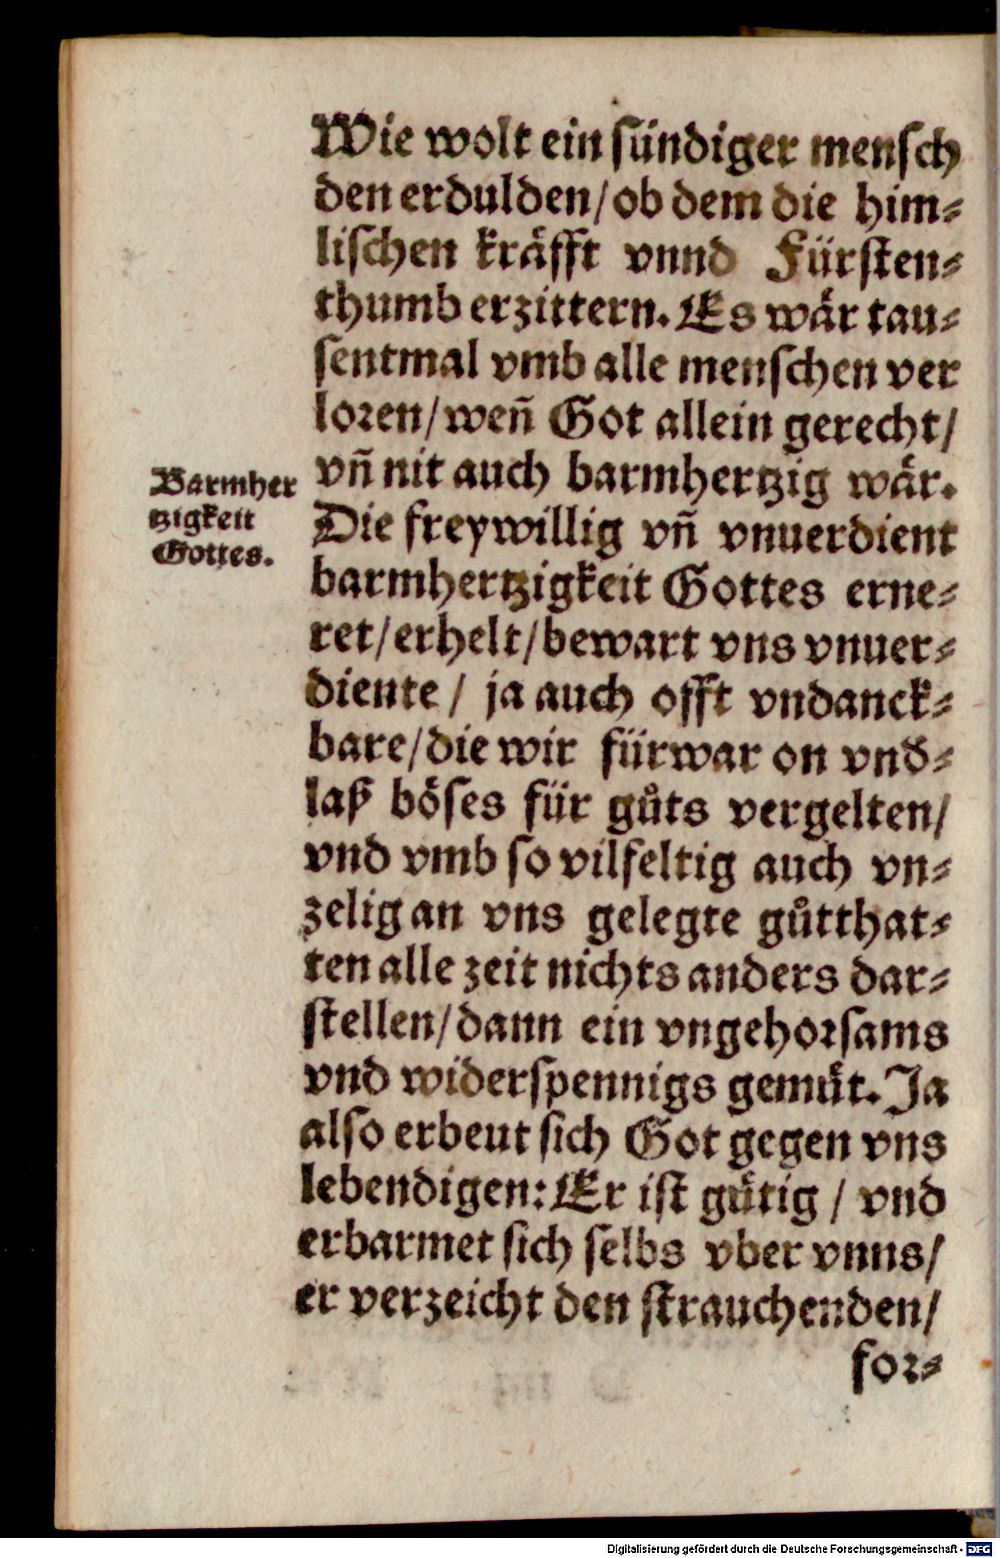 Wie wolt ein sündiger mensch
den erdulden/ ob dem die him⸗
lischen kräfft vnnd Fürsten⸗
thumb erzittern. Es wär tau⸗
sentmal vmb alle menschen ver
loren/ weñ Got allein gerecht/
vñ nit auch barmhertzig wär.
Barmher
tzigkeit
Gottes.
Die freywillig vñ vnuerdient
barmhertzigkeit Gottes erne⸗
ret/ erhelt/ bewart vns vnuer⸗
diente/ ja auch offt vndanck⸗
bare/ die wir fürwar on vnd⸗
laß böses für gůts vergelten/
vnd vmb so vilfeltig auch vn⸗
zelig an vns gelegte gůtthat⸗
ten alle zeit nichts anders dar⸗
stellen/ dann ein vngehorsams
vnd widerspennigs gemüt. Ja
also erbeut sich Got gegen vns
lebendigen: Er ist gütig / vnd
erbarmet sich selbs vber vnns/
er verzeicht den strauchenden/
for⸗
Digitalisierung gefördert durch die Deutsche Forschungsgemeinschaft - DFG